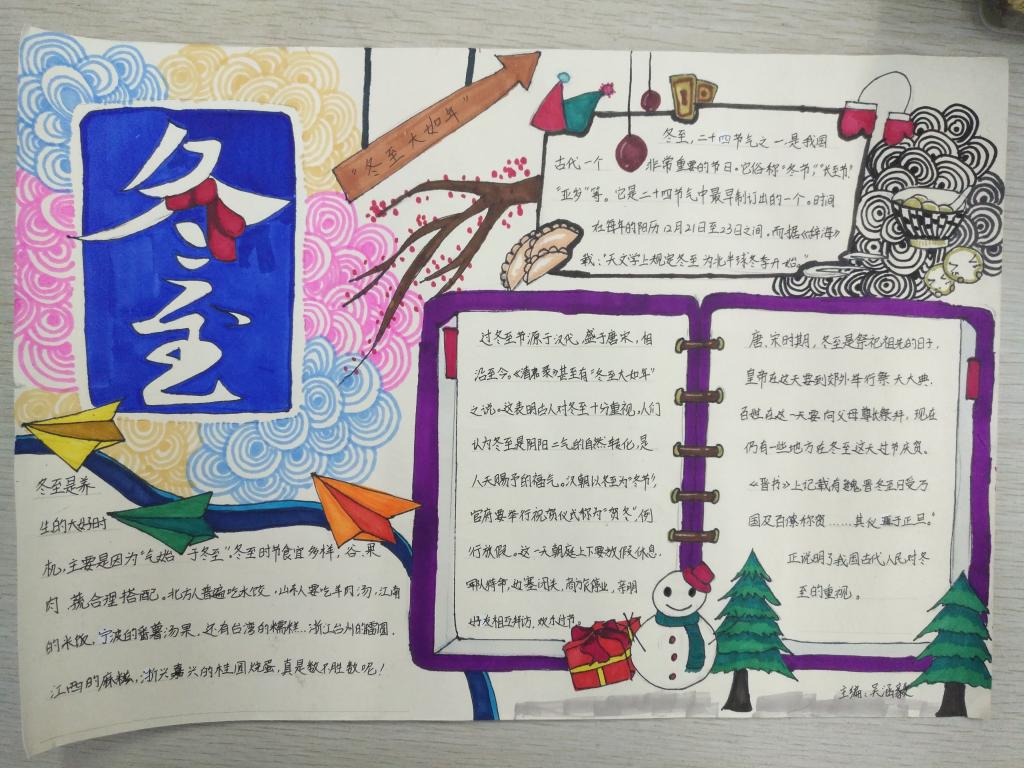 冬至
"冬至大如年"
冬至，二十四节气之一是我国
古代一个 非常重要的节日。它俗称"冬节","长至节"
"亚岁"等。它是二十四节气中最早制订出的一个。时间
在每年的阳历12月21日至23日之间。而据《辞海》
载："天文学上规定冬至为北半球冬季开始。"
过冬至节源于汉代，盛于唐宋，相
沿至今。《清嘉录》甚至有"冬至大如年"
之说。这表明古人对冬至十分重视。人们
认为冬至是阴阳二气的自然转化，是
人天赐予的福气。汉朝以冬至为"冬节",
官府要举行祝贺仪式称为"贺冬"，例
行放假。这一天朝庭上下要放假休息，
军队待命，边塞闭关，商旅停业，亲朋
好友相互拜访，欢乐过节。
唐、宋时期，冬至是祭祀祖先的日子，
皇帝在这天要到郊外举行祭天大典，
百姓在这一天要向父母尊长祭拜，现在
仍有一些地方在冬至这天过节庆贺。
《晋书》上记载有魏晋冬至日受万
国及百僚称贺……其仪亚于正旦。"
正说明了我国古代人民对冬
至的重视。
冬至是养
生的大好时
机，主要是因为"气始于冬至"。冬至时节食宜多样，谷、果
肉 蔬合理搭配。北方人普遍吃水饺，山东人要吃羊肉汤，江南
的米饭，宁波的番薯汤果，还有台湾的糯糕…浙江台州的擂圆，
江西的麻糍，浙兴嘉兴的桂圆烧蛋，真是数不胜数呢！
主编：吴涵毅